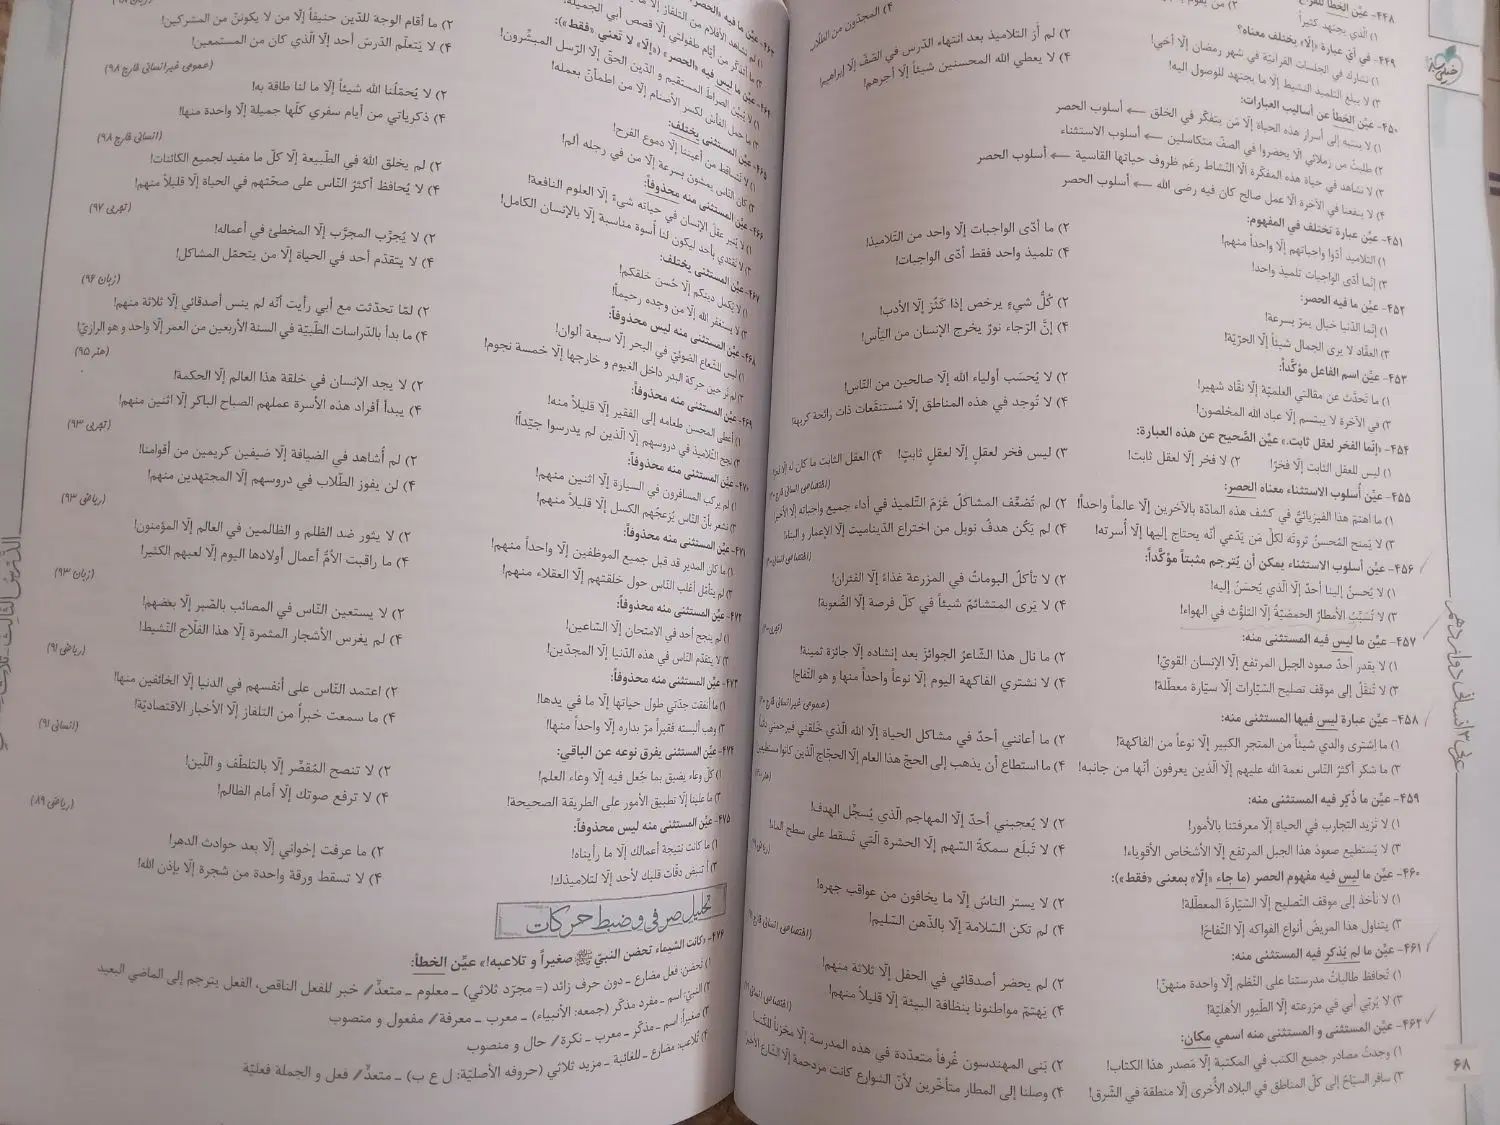 ۴۴۸- عیّن الخطأ
۱) الّذي يجتهد كثيراً
۴) المجدّون من الطلّاب
۴۴۹- في أيّ عبارة «إلّا» يختلف معناه؟
۱) نشارك في الجلسات القرآنيّة في شهر رمضان إلّا أخي!
۲) لم أر التلاميذ بعد انتهاء الدّرس في الصّفّ إلّا إبراهيم!
۳) لا يبلغ التلميذ النشيط إلّا ما يجتهد للوصول اليه!
۴) لا يعطي الله المحسنين شيئاً إلّا أجرهم!
۴۵۰- عیّن الخطأ عن أساليب العبارات:
۱) لا ينتبه إلى أسرار هذه الحياة إلّا مَن يتفكّر في الخلق ← أسلوب الحصر
۲) طلبتُ من زملائي ألّا يحضروا في الصفّ متكاسلين ← أسلوب الاستثناء
۳) لا نشاهد في حياة هذه المفكّرة إلّا النّشاط رغم ظروف حياتها القاسية ← أسلوب الحصر
۴) لا ينفعنا في الآخرة إلّا عمل صالح كان فيه رضى الله ← أسلوب الحصر
۴۵۱- عیّن عبارة تختلف في المفهوم:
۱) التلاميذ أدّوا واجباتهم إلّا واحداً منهم!
۲) ما أدّى الواجبات إلّا واحد من التّلاميذ!
۳) إنّما أدّى الواجبات تلميذ واحد!
۴) تلميذ واحد فقط أدّى الواجبات!
۴۵۲- عیّن ما فيه الحصر:
۱) إنّما الدّنيا خيال يمرّ بسرعة!
۲) كُلُّ شيءٍ يرخص إذا كَثُرَ إلّا الأدب!
۳) العقّاد لا يرى الجمال شيئاً إلّا الحرّيّة!
۴) إنَّ الرّجاء نورٌ يخرج الإنسان من اليأس!
۴۵۳- عیّن اسم الفاعل مؤكَّداً:
۱) ما تَحدَّث عن مقالتي العلميّة إلّا نقّاد شهير!
۲) لا يُحسَب أولياء الله إلّا صالحين من النّاس!
۳) في الآخرة لا يبتسم إلّا عباد الله المخلصون!
۴) لا تُوجد في هذه المناطق إلّا مُستنقَعات ذات رائحة كريهة!
۴۵۴- «إنّما الفخر لعقل ثابت.» عیّن الصّحيح عن هذه العبارة:
۱) ليس للعقل الثابت إلّا فخرٌ!
۲) لا فخر إلّا لعقل ثابت!
۳) ليس فخر لعقلٍ إلّا لعقلٍ ثابتٍ!
۴) العقل الثابت ما كان له إلّا فخر!
۴۵۵- عیّن أسلوب الاستثناء معناه الحصر:
۱) ما اهتمّ هذا الفيزيائيُّ في كشف هذه المادّة بالآخرين إلّا عالماً واحداً!
۲) لم تُضعِّف المشاكلُ عَزمَ التّلميذ في أداء جميع واجباته إلّا الأخير!
۳) لا يَمنح المُحسنُ ثروتَه لكلّ مَن يَدّعي أنّه يحتاج إليها إلّا أُسرته!
۴) لم يَكُن هدفُ نوبل من اختراع الدّيناميت إلّا الإعمار و البناء!
۴۵۶- عیّن أسلوب الاستثناء يمكن أن يُترجم مثبتاً مؤكَّداً:
۱) لا يُحسنُ إلينا أحدٌ إلّا الّذي يُحسَنُ إليه!
۲) لا تأكلُ البوماتُ في المزرعة غذاءً إلّا الفئران!
۳) لا تُسَبِّبُ الأمطارُ الحمضيّةُ إلّا التلوُّث في الهواء!
۴) لا يَرى المتشائمُ شيئاً في كلّ فرصة إلّا الصّعوبة!
۴۵۷- عیّن ما ليس فيه المستثنى منه:
۱) لا يقدر أحدٌ صعود الجبل المرتفع إلّا الإنسان القويّ!
۲) ما نال هذا الشّاعرُ الجوائزَ بعد إنشاده إلّا جائزة ثمينة!
۳) لا تُنقَلُ إلى موقف تصليح السّيّارات إلّا سيّارة معطّلة!
۴) لا نشتري الفاكهة اليوم إلّا نوعاً واحداً منها و هو التّفاح!
۴۵۸- عیّن عبارة ليس فيها المستثنى منه:
۱) ما اشترى والدي شيئاً من المتجر الكبير إلّا نوعاً من الفاكهة!
۲) ما أعانني أحدٌ في مشاكل الحياة إلّا الله الّذي خَلقني فيرحمني دائماً!
۳) ما شكر أكثرُ النّاس نعمة الله عليهم إلّا الّذين يعرفون أنّها من جانبه!
۴) ما استطاع أن يذهب إلى الحجّ هذا العام إلّا الحجّاج الّذين كانوا مستطيعين!
۴۵۹- عیّن ما ذُكر فيه المستثنى منه:
۱) لا تَزيد التجارب في الحياة إلّا معرفتنا بالأمور!
۲) لا يُعجبني أحدٌ إلّا المهاجم الّذي يُسجِّل الهدف!
۳) لا يَستطيع صعودَ هذا الجبل المرتفع إلّا الأشخاص الأقوياء!
۴) لا تَبلَع سمكةُ السّهم إلّا الحشرة الّتي تَسقط على سطح الماء!
۴۶۰- عیّن ما ليس فيه مفهوم الحصر (ما جاء «إلّا» بمعنى «فقط»):
۱) لا نأخذ إلى موقف التّصليح إلّا السّيّارةَ المعطّلة!
۲) لا يستر الناسُ إلّا ما يخافون من عواقب جهره!
۳) يتناول هذا المريضُ أنواع الفواكه إلّا التّفاحَ!
۴) لم تكن السّلامة إلّا بالذّهن السّليم!
۴۶۱- عیّن ما لم يُذكر فيه المستثنى منه:
۱) تُحافظ طالباتُ مدرستنا على النّظم إلّا واحدة منهنّ!
۲) لم يحضر أصدقائي في الحفل إلّا ثلاثة منهم!
۳) لا يُربّي أبي في مزرعته إلّا الطّيور الأهليّة!
۴) يَهتمّ مواطنونا بنظافة البيئة إلّا قليلاً منهم!
۴۶۲- عیّن المستثنى و المستثنى منه اسمي مكان:
۱) وجدتُ مصادر جميع الكتب في المكتبة إلّا مَصدر هذا الكتاب!
۲) بَنى المهندسون غُرفاً متعدّدة في هذه المدرسة إلّا مخزناً للكتب!
۳) سافر السيّاح إلى كلّ المناطق في البلاد الأُخرى إلّا منطقة في الشّرق!
۴) وصلنا إلى المطار متأخّرين لأنّ الشوارع كانت مزدحمة إلّا الشّارع الأخير!
۶۸
۴۶۳- عیّن ما فيه «الحصر»
۲) ما أقام الوجهَ للدّين حنيفاً إلّا من لا يكوننّ من المشركين!
۴) لا يَتعلّم الدّرسَ أحد إلّا الّذي كان من المستمعين!
۴۶۴- عیّن ما ليس فيه «الحصر» («إلّا» لا تَعني «فقط»):
۱) لا يُبيِّن الصراطَ المستقيم و الدّين الحقّ إلّا الرّسل المبشّرون!
۲) لا يُحمّلُنا الله شيئاً إلّا ما لنا طاقة به!
۳) ما حمل الفأسَ لكسر الأصنام إلّا من اطمأنّ بعمله!
۴) ذكرياتي من أيام سفري كلّها جميلة إلّا واحدة منها!
۴۶۵- عیّن المستثنى يختلف:
۱) لا تتساقط من أعيننا إلّا دموع الفرح!
۲) لم يخلق اللهُ في الطّبيعة إلّا كلّ ما مفيد لجميع الكائنات!
۳) كان النّاس يمشون بسرعة إلّا من في رجله ألم!
۴) لا يُحافظ أكثرُ النّاس على صحّتهم في الحياة إلّا قليلاً منهم!
۴۶۶- عیّن المستثنى منه محذوفاً:
۱) لا يُغيّر عقلَ الإنسان في حياته شيءٌ إلّا العلوم النافعة!
۲) لا يُجرِّب المجرَّب إلّا المخطئ في أعماله!
۳) لا نَقتدي بأحد ليكون لنا أسوة مناسبة إلّا بالإنسان الكامل!
۴) لا يتقدّم أحد في الحياة إلّا من يتحمّل المشاكل!
۴۶۷- عیّن المستثنى يختلف:
۱) لا يُكمل دينكم إلّا حُسن خلقكم!
۲) لمّا تحدّثت مع أبي رأيت أنّه لم ينس أصدقائي إلّا ثلاثة منهم!
۳) لا يستغفر الله إلّا من وجده رحيماً!
۴) ما بدأ بالدّراسات الطّبيّة في السنة الأربعين من العمر إلّا واحد و هو الرازيّ!
۴۶۸- عیّن المستثنى منه ليس محذوفاً:
۱) ليس للشّعاع الضوئيّ في البحر إلّا سبعة ألوان!
۲) لا يجد الإنسان في خلقة هذا العالم إلّا الحكمة!
۳) لم نر حين حركة البدر داخل الغيوم و خارجها إلّا خمسة نجوم!
۴) يبدأ أفراد هذه الأسرة عملهم الصباح الباكر إلّا اثنين منهم!
۴۶۹- عیّن المستثنى منه محذوفاً:
۱) أعطى المحسن طعامه إلى الفقير إلّا قليلاً منه!
۲) لم أُشاهد في الضيافة إلّا ضيفين كريمين من أقوامنا!
۳) نجح التّلاميذ في دروسهم إلّا الّذين لم يدرسوا جيّداً!
۴) لن يفوز الطّلاب في دروسهم إلّا المجتهدين منهم!
۴۷۰- عیّن المستثنى منه محذوفاً:
۱) لم يركب المسافرون في السيارة إلّا اثنين منهم!
۲) لا يثور ضد الظلم و الظالمين في العالم إلّا المؤمنون!
۳) نشعر بأنّ النّاس يُزعجهم الكسل إلّا قليلاً منهم!
۴) ما راقبت الأمُّ أعمال أولادها اليوم إلّا لعبهم الكثير!
۴۷۱- عیّن المستثنى منه محذوفاً:
۱) ما كان المدير قد قبل جميع الموظفين إلّا واحداً منهم!
۲) لا يستعين النّاس في المصائب بالصّبر إلّا بعضهم!
۳) لم يتأمّل أغلب النّاس حول خلقتهم إلّا العقلاء منهم!
۴) لم يغرس الأشجار المثمرة إلّا هذا الفلّاح النّشيط!
۴۷۲- عیّن المستثنى منه محذوفاً:
۱) لم ينجح أحد في الامتحان إلّا السّاعين!
۲) اعتمد النّاس على أنفسهم في الدنيا إلّا الخائفين منها!
۳) لا يتقدّم النّاس في هذه الدّنيا إلّا المجدّين!
۴) ما سمعت خبراً من التلفاز إلّا الأخبار الاقتصاديّة!
۴۷۳- عیّن المستثنى منه محذوفاً:
۱) ما أنفقت جدّتي طول حياتها إلّا ما في يدها!
۳) وهب ألبسته فقيراً مرّ بداره إلّا واحداً منها!
۴۷۴- عیّن المستثنى يفرق نوعه عن الباقي:
۱) كلّ وعاء يضيق بما جُعل فيه إلّا وعاء العلم!
۲) لا تنصح المُقصِّر إلّا بالتلطّف و اللّين!
۳) ما علينا إلّا تطبيق الأمور على الطريقة الصحيحة!
۴) لا ترفع صوتك إلّا أمام الظالم!
۴۷۵- عیّن المستثنى منه ليس محذوفاً:
۱) ما كانت نتيجة أعمالك إلّا ما رأيناه!
۲) ما عرفت إخواني إلّا بعد حوادث الدهر!
۳) أ تنبض دقات قلبك لأحد إلّا لتلاميذك!
۴) لا تسقط ورقة واحدة من شجرة إلّا بإذن الله!
تحلیل صرفی و ضبط حرکات
۴۷۶- «كانت الشيماء تحضن النبيّ ﷺ صغيراً و تلاعبه!» عیّن الخطأ:
۱) تحضن: فعل مضارع ـ دون حرف زائد (= مجرّد ثلاثي) ـ معلوم ـ متعدٍّ // خبر للفعل الناقص، الفعل يترجم إلى الماضي البعيد
۲) النبيّ: اسم ـ مفرد مذكّر (جمعه: الأنبياء) ـ معرب ـ معرفة // مفعول و منصوب
۳) صغيراً: اسم ـ مذكّر ـ معرب ـ نكرة // حال و منصوب
۴) تُلاعب: مضارع ـ للغائبة ـ مزيد ثلاثي (حروفه الأصليّة: ل ع ب) ـ متعدٍّ // فعل و الجملة فعليّة